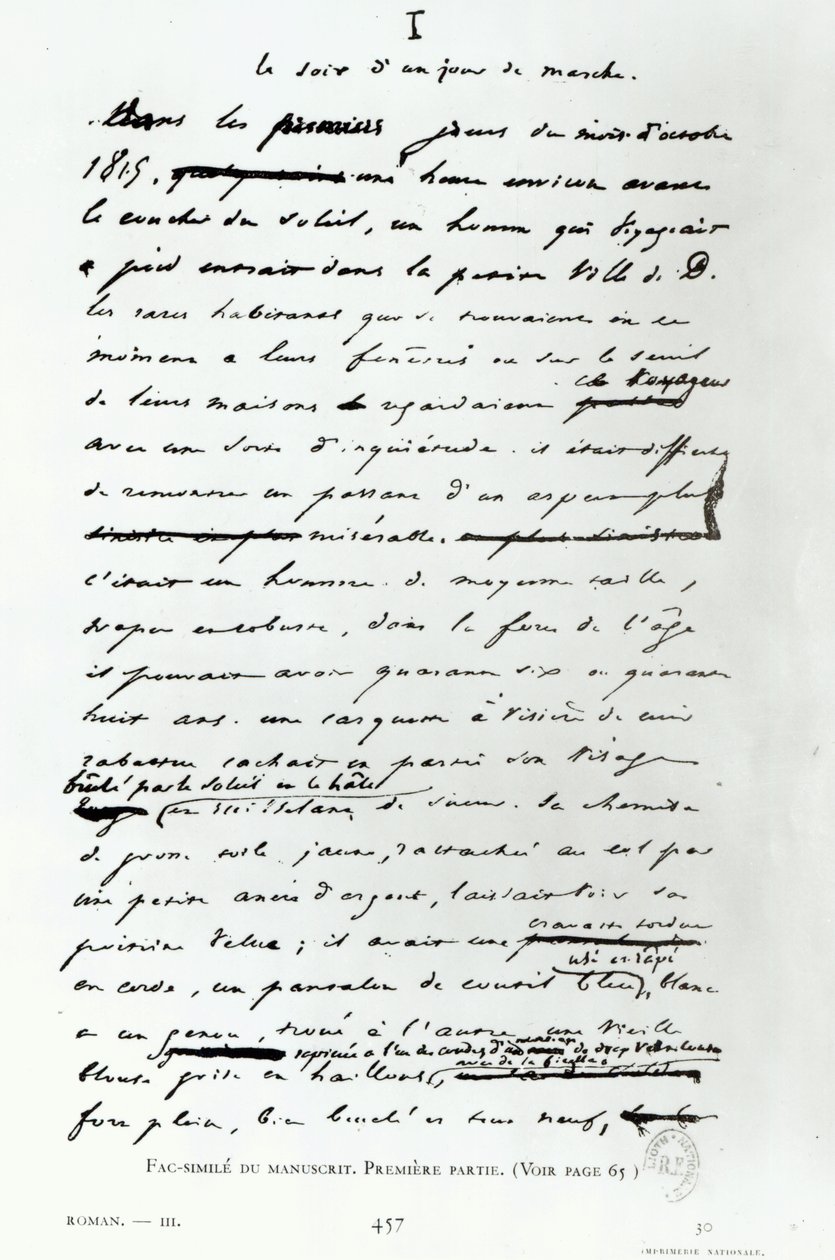 I
le soir d'un jour de marche.
Dans les premiers jours du mois d'octobre
1815, une heure environ avant
le coucher du soleil, un homme qui voyageait
à pied entrait dans la petite ville de D.
les rares habitants qui se trouvaient en ce
moment à leurs fenêtres ou sur le seuil
ce voyageur
de leurs maisons regardaient
avec une sorte d'inquiétude. il était difficile
de rencontrer un passant d'un aspect plus
misérable.
c'était un homme de moyenne taille,
trapu et robuste, dans la force de l'âge
il pouvait avoir quarante six ou quarante
huit ans. une casquette à visière de cuir
rabattue cachait en partie son visage
brûlé par le soleil et le hâle
et ruisselant de sueur. Sa chemise
de grosse toile jaune, rattachée au col par
une petite ancre d'argent, laissait voir sa
cravate tordue
poitrine velue ; il avait une
usé et râpé
en corde, un pantalon de coutil bleu, blanc
à un genou, troué à l'autre, une vieille
rapiécée à l'un des coudes d'un morceau de drap vert cousu
avec de la ficelle
blouse grise en haillons,
fort plein, bien bouclé et tout neuf,
FAC-SIMILÉ DU MANUSCRIT. PREMIÈRE PARTIE. (VOIR PAGE 65)
ROMAN. — III.
457
30
IMPRIMERIE NATIONALE.